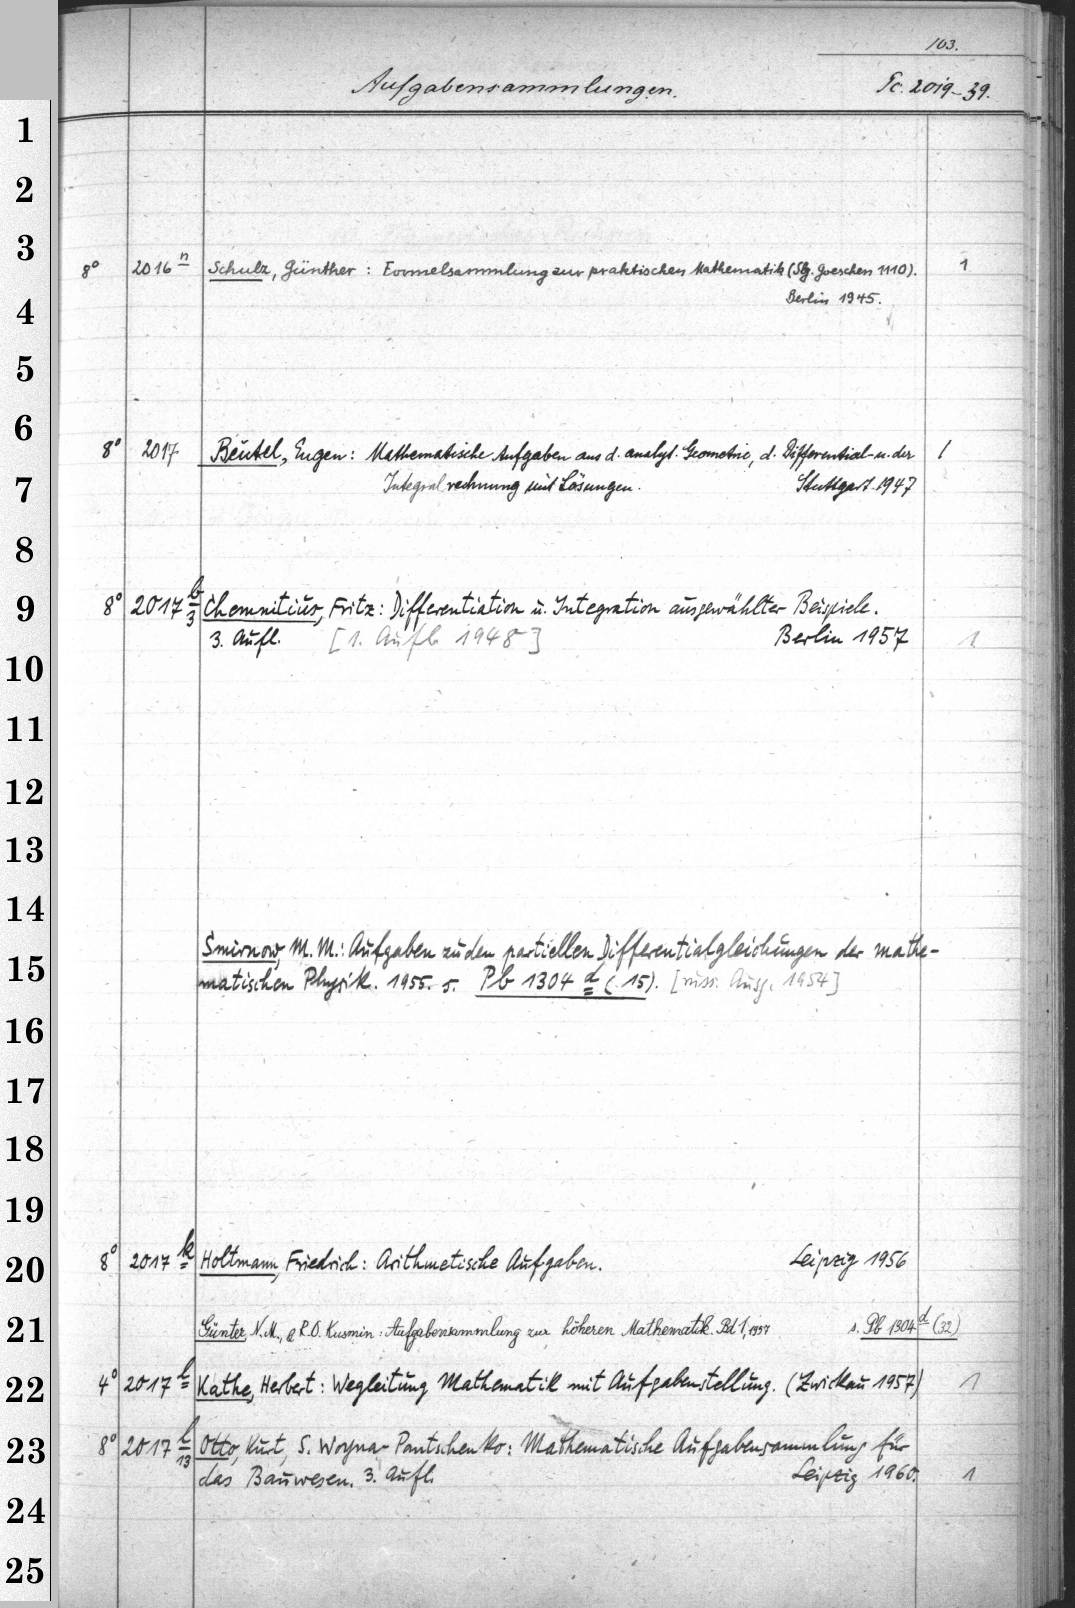 103.
Aufgabensammlungen. Tc. 2019-39.
1
2
3
8° 2016 n Schulz, Günther : Formelsammlung zur praktischen Mathematik (Slg. Goeschen 1110). 1
Berlin 1945.
4
5
6
8° 2017 Beutel, Eugen : Mathematische Aufgaben aus d. analyt. Geometrie, d. Differential- u. der 1
7 Integralrechnung mit Lösungen. Stuttgart 1947
8
9 8° 2017 b/3 Chemnitius, Fritz : Differentiation u. Integration ausgewählter Beispiele.
3. Aufl. [1. Aufl. 1948] Berlin 1957 1
10
11
12
13
14
Smirnow, M. M. : Aufgaben zu den partiellen Differentialgleichungen der mathe-
15 matischen Physik. 1955. s. Pb 1304 d (15). [russ. Ausg. 1954]
16
17
18
19
20 8° 2017 k Holtmann, Friedrich : Arithmetische Aufgaben. Leipzig 1956
21 Günter, N.M., & R.O. Kusmin : Aufgabensammlung zur höheren Mathematik. Bd 1, 1957 s. Pb 1304 d (32)
22 4° 2017 l Kathe, Herbert : Wegleitung Mathematik mit Aufgabenstellung. (Zwickau 1957) 1
23 8° 2017 l/13 Otto, Kurt, S. Woyna-Pantschenko : Mathematische Aufgabensammlung für
das Bauwesen. 3. Aufl. Leipzig 1960. 1
24
25